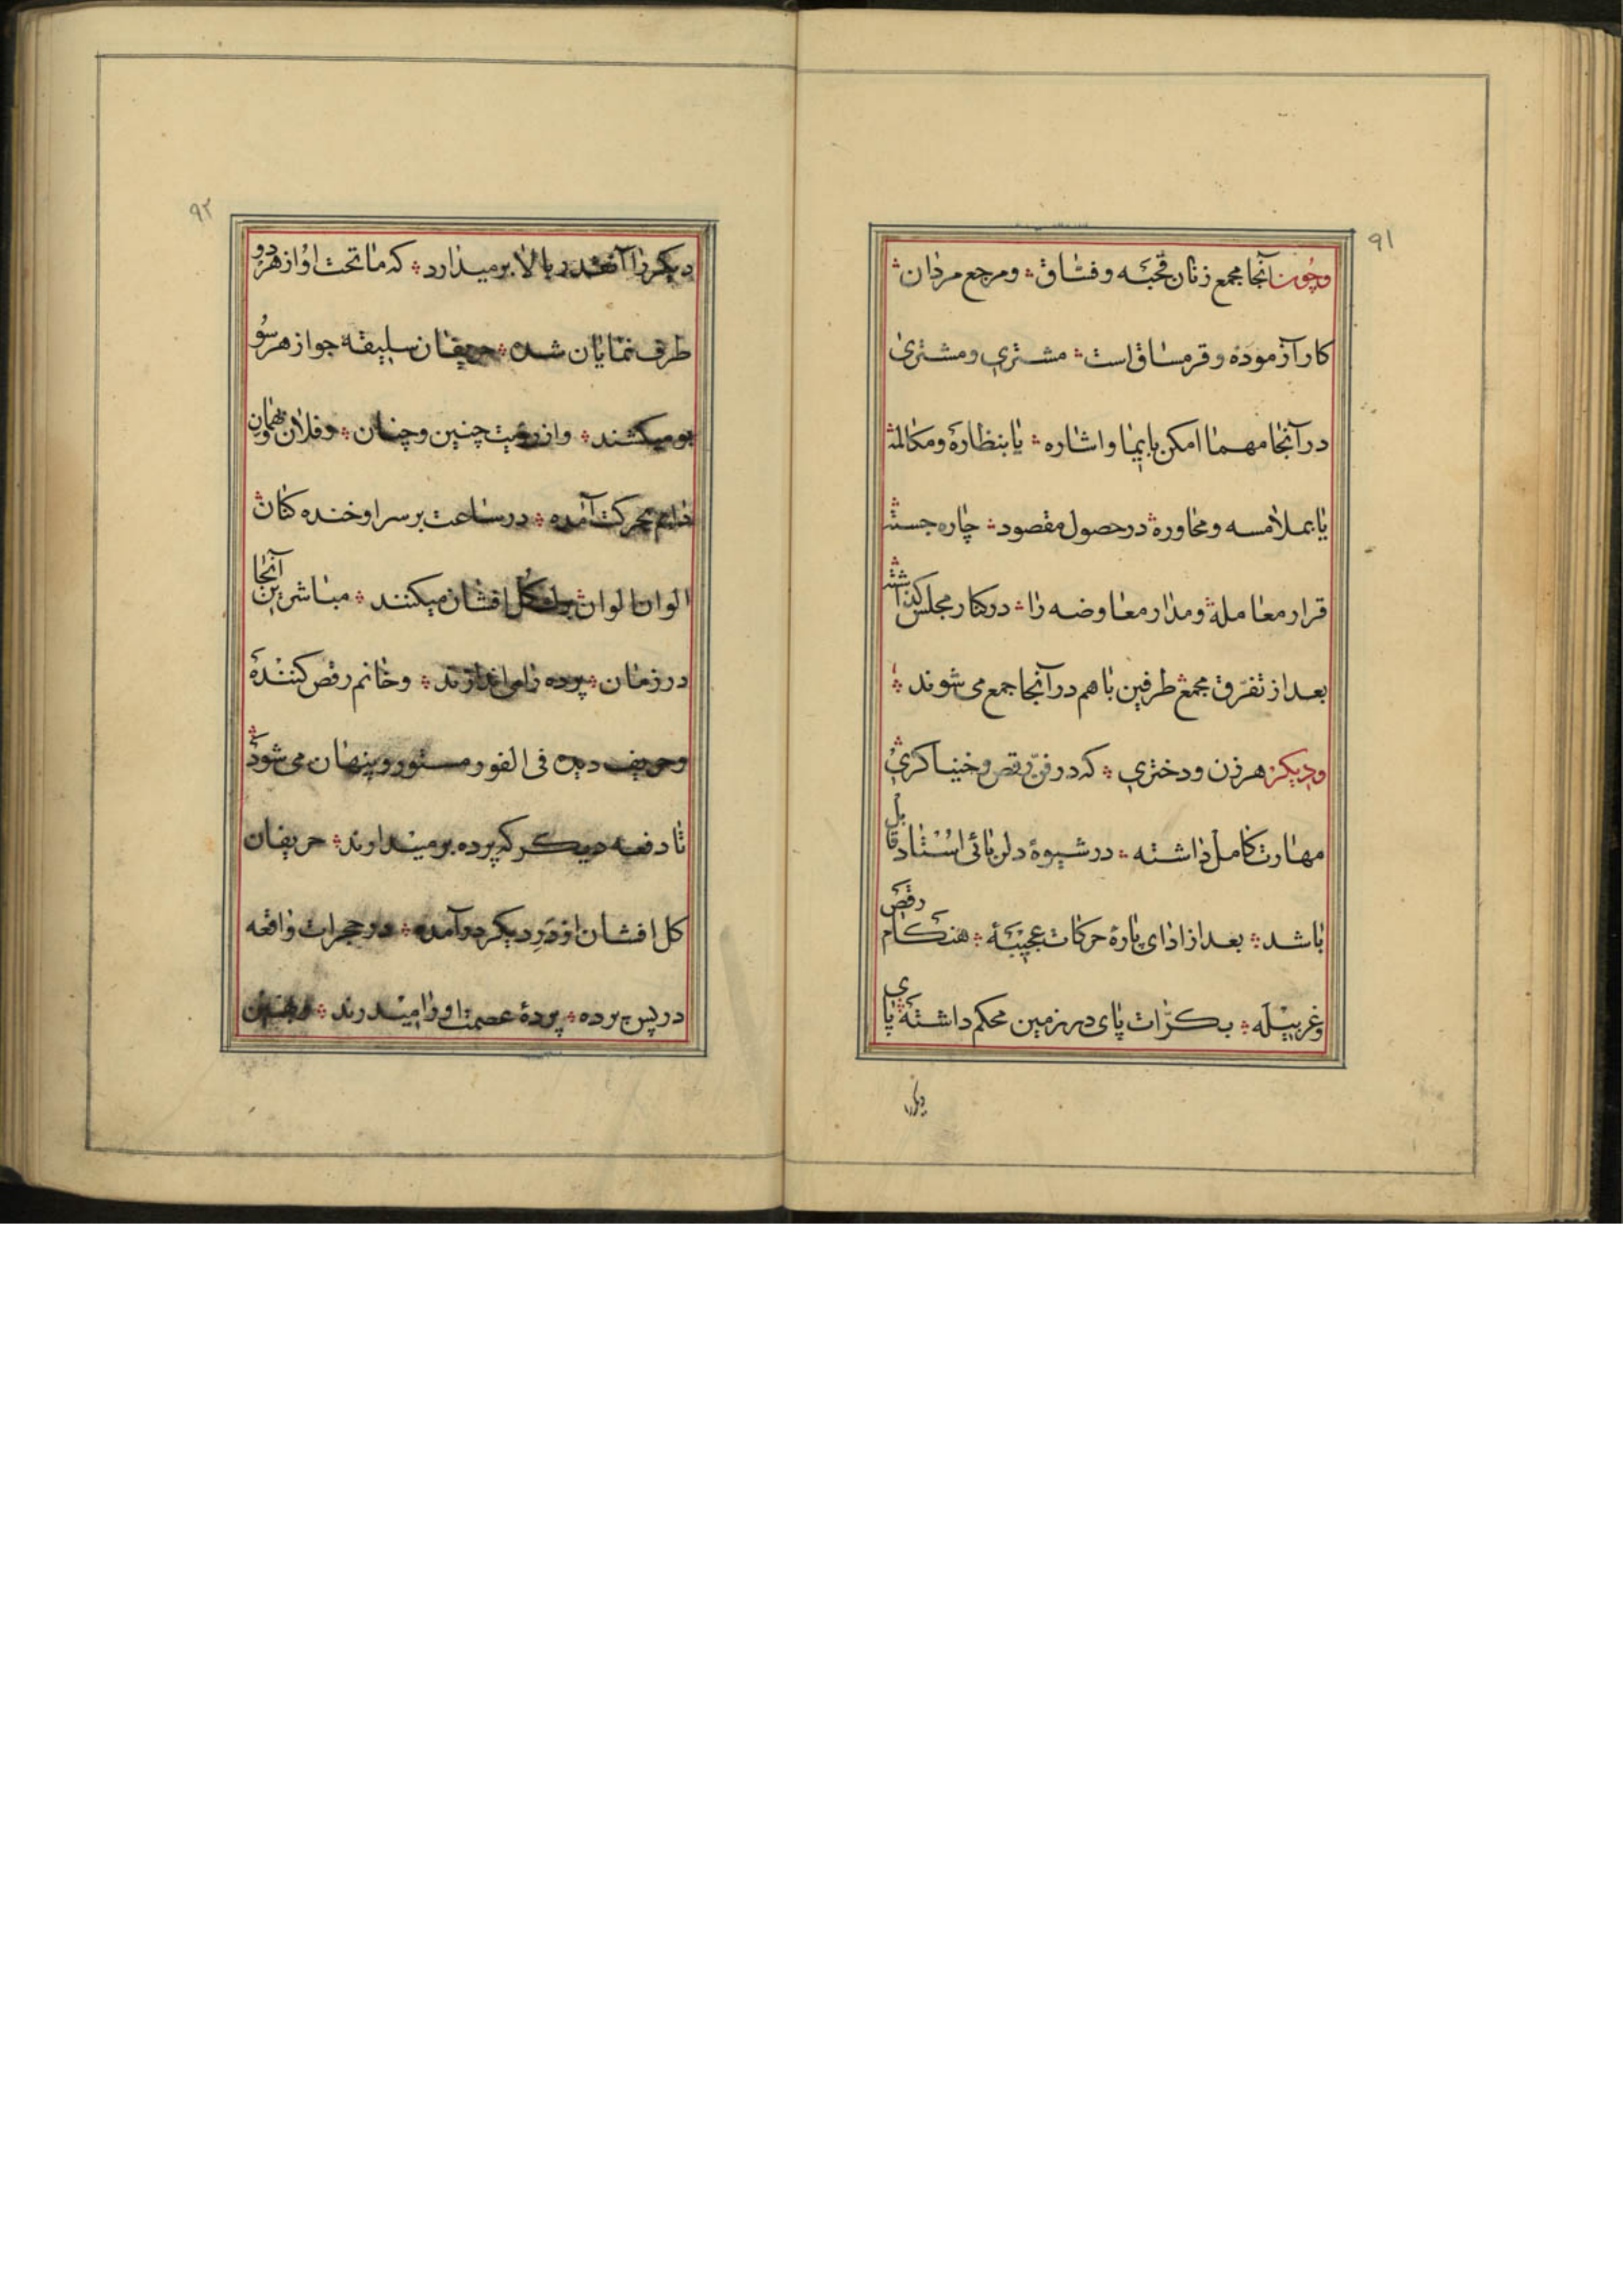 ۹۱
وچون آنجا مجمع زنان قحبه و فسّاق ؞ و مرجع مردان ؞
کار آزموده و قرمساق است ؞ مشتری و مشتری
در آنجا مهما امکن بایما و اشاره ؞ یا بنظاره و مکالمه
یا بملامسه و محاوره ؞ در حصول مقصود ؞ چاره جسته
قرار معامله و مدار معاوضه را ؞ در کنار مجلس گذاشته ؞
بعد از تفرّق مجمع طرفین با هم در آنجا جمع می شوند ؞
ودیگر هر زن و دختری ؞ که در فنّ رقص و خنیاگری
مهارت کامل داشته ؞ در شیوهٔ دلربائی استاد قابل
باشد ؞ بعد از ادای پارهٔ حرکات عجیبه ؞ هنگام رقص
وغربیله ؞ بکرّات پای در زمین محکم داشته پای
دیگررا
۹۲
دیگر را آنقدر بالا برمیدارد ؞ که ما تحت او از هر دو
طرف نمایان شده ؞ حریفان سلیقه جو از هر سو
بو میکشند ؞ و از رؤیت چنین و چنان ؞ و فلان و بهمان
دایم بحرکت آمده ؞ در ساعت بر سر او خنده کنان
الوان الوان ؞ گل افشان میکنند ؞ مباشرین آنجا
در زمان ؞ پرده را می اندازند ؞ و خانم رقص کننده
و حریف دیده فی الفور مستور و پنهان می شود ؞
تا دفعه دیگر که پرده برمیدارند ؞ حریفان
گل افشان از در دیگر درآمده ؞ در حجرات واقعه
در پس پرده ؞ پردهٔ عصمت او را میدرند ؞